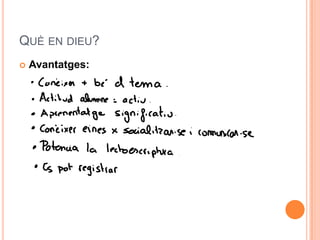 QUÈ EN DIEU?
Avantatges:
• Conèixer + bé el tema.
• Actitud alumne = activ.
• Aprenentatge significatiu.
• Conèixer eines x socialitzar-se i comunicar-se
• Potencia la lectoescriptura
• Es pot registrar